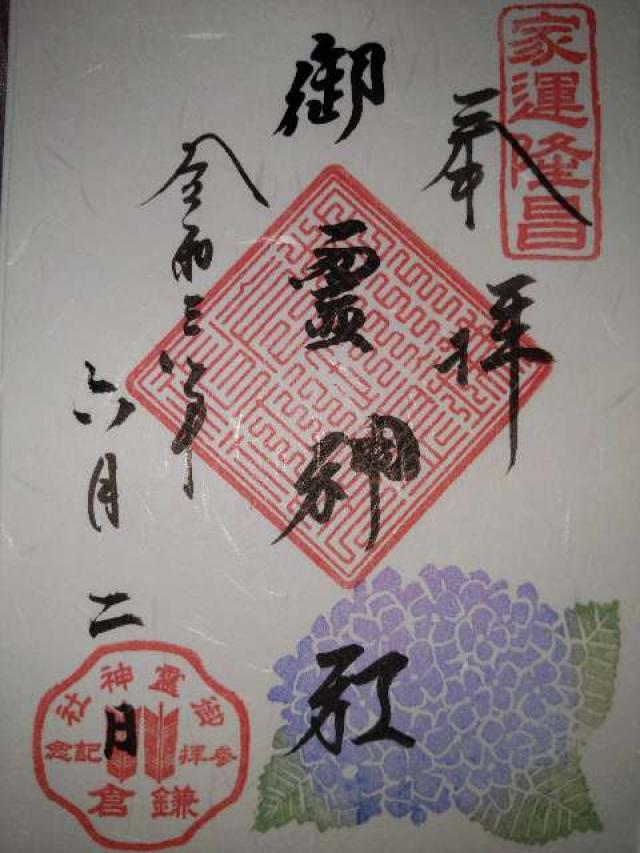 家運隆昌
奉拝
御霊神社
令和三年
六月二日
御霊神社
参拝記念
鎌倉